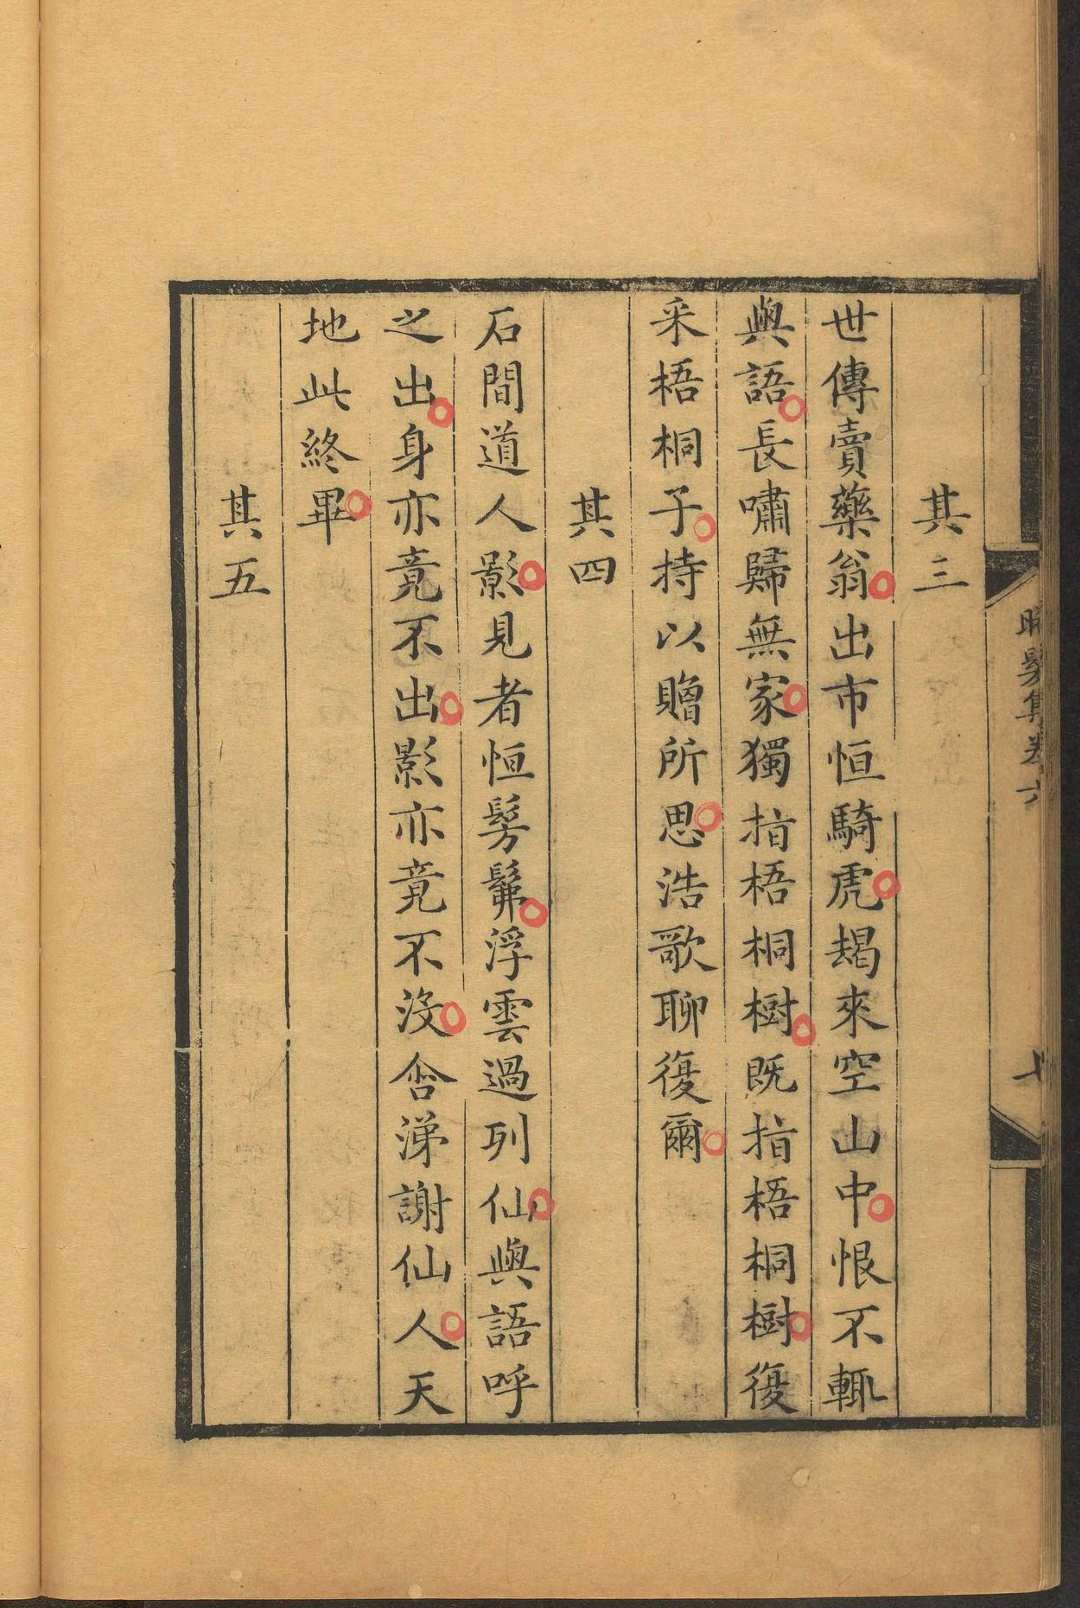 其三
世傳賣藥翁出市恒騎虎朅來空山中恨不輒
與語長嘯歸無家獨指梧桐樹既指梧桐樹復
采梧桐子持以贈所思浩歌聊復爾
其四
石間道人影見者恒髣髴浮雲過列仙與語呼
之出身亦竟不出影亦竟不没含涕謝仙人天
地此終畢
其五
晞髮集卷六
七